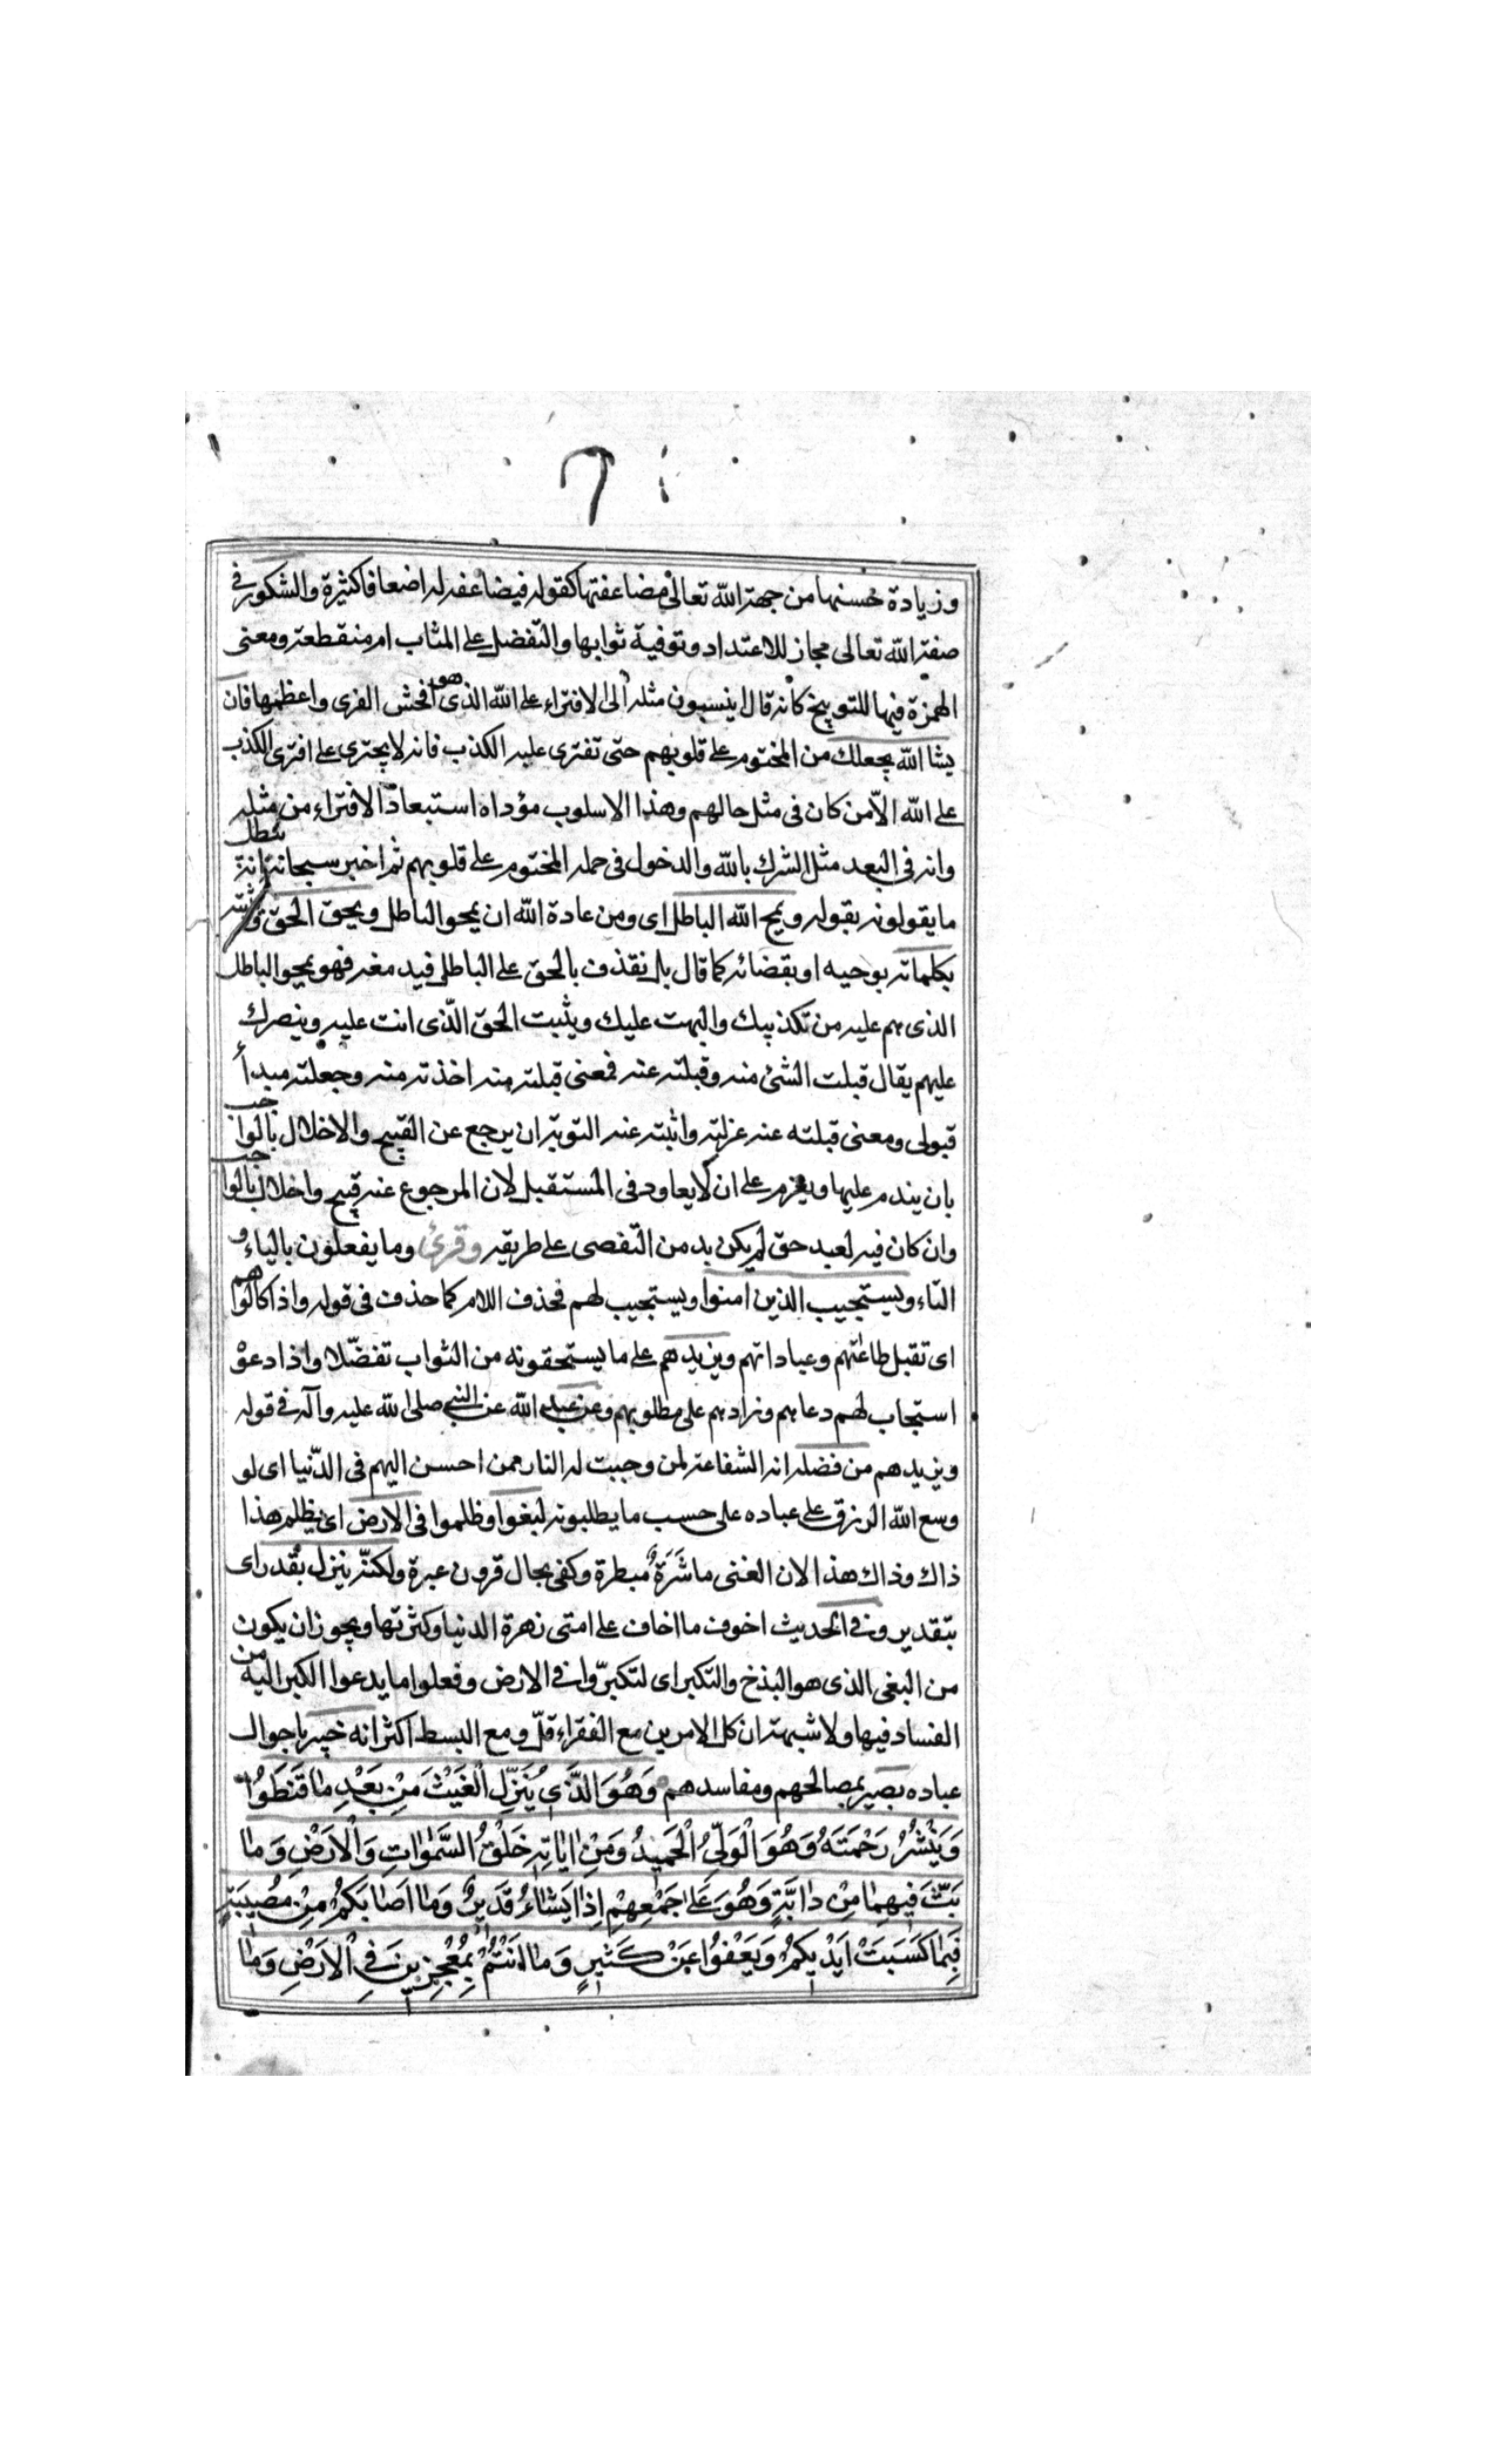 وزيادة حسنها من جهة الله تعالى مضاعفتها كقوله فيضاعفه له اضعافا كثيرة والشكور في
صفة الله تعالى مجاز للاعتداد وتوفية ثوابها والتفضل على المثاب ام منقطعة ومعنى
الهمزة فيها للتوبيخ كانه قال اينسبون مثله الى الافتراء على الله الذى هو افحش الفرى واعظمها فان
يشا الله يجعلك من المختوم على قلوبهم حتى تفترى عليه الكذب فانه لا يجترى على افترى الكذب
على الله الّا من كان فى مثل حالهم وهذا الاسلوب مؤداه استبعاد الافتراء من مثله
وانه فى البعد مثل الشرك بالله والدخول فى جمله المختوم على قلوبهم ثم اخبر سبحانه انه يبطل
ما يقولونه بقوله ويمح الله الباطل اى ومن عادة الله ان يمحو الباطل ويحق الحق ويثبته
بكلماته بوحيه او بقضائه كما قال بل نقذف بالحق على الباطل فيدمغه فهو يمحو الباطل
الذى هم عليه من تكذيبك والبهت عليك ويثبت الحق الّذى انت عليه وينصرك
عليهم يقال قبلت الشئ منه وقبلته عنه فمعنى قبلته منه اخذته منه وجعلته مبدأ
قبولى ومعنى قبلته عنه عزلته واثبته عنه التوبة ان يرجع عن القبيح والاخلال بالواجب
بان يندم عليها ويعزم على ان لا يعاود فى المستقبل لان المرجوع عنه قبيح واخلال بالواجب
وان كان فيه لعبد حق لم يكن بد من التفصى على طريقه وقرئ وما يفعلون بالياء و
التاء ويستجيب الذين امنوا ويستجيب لهم فحذف اللام كما حذف فى قوله واذا كالوهم
اى تقبل طاعتهم وعباداتهم ويزيدهم على ما يستحقونه من الثواب تفضّلا واذا دعوْ
استجاب لهم دعاهم وزادهم على مطلوبهم وعن عبد الله عن النبى صلى الله عليه وآله فى قوله
ويزيدهم من فضله انه الشفاعة لمن وجبت له النار ممن احسن اليهم فى الدّنيا اى لو
وسع الله الرزق على عباده على حسب ما يطلبونه لبغوا وظلموا فى الارض اى يظلم هذا
ذاك وذاك هذا لان الغنى ماشَرَةٌ مبطرة وكفى بحال قرون عبرة ولكنّه ينزل بقدر اى
بتقدير وفى الحديث اخوف ما اخاف على امتى زهرة الدنيا وكثرتها ويجوز ان يكون
من البغى الذى هو البذخ والتكبر اى لتكبّروا فى الارض وفعلوا ما يدعوا الكبر اليه من
الفساد فيها ولا شبهة ان كل الامرين مع الفقراء قلّ ومع البسط اكثر انه خبير باحوال
عباده بصير بمصالحهم ومفاسدهم وَهُوَ الَّذَي يُنَزِّلُ الْغَيْثَ مِنْ بَعْدِ مٰا قَنَطُوا
وَيَنْشُرُ رَحْمَتَهُ وَهُوَ الْوَلِيُّ الْحَمِيدُ وَمِنْ اٰيٰاتِهِ خَلْقُ السَّمٰوٰاتِ وَالْاَرْضِ وَمٰا
بَثَّ فِيهِمٰا مِنْ دٰابَّةٍ وَهُوَ عَلىٰ جَمْعِهِمْ اِذٰا يَشٰاءُ قَدِيرٌ وَمٰا اَصٰابَكُمْ مِنْ مُصِيبَةٍ
فَبِمٰا كَسَبَتْ اَيْدِيكُمْ وَيَعْفُوا عَنْ كَثِيرٍ وَمٰا اَنْتُمْ بِمُعْجِزِينَ فِي الْاَرْضِ وَمٰا